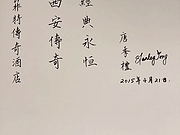 菲特傳奇酒店
西安傳奇
經典永恒
唐季禮 Stanley Tong
2015年4月21日.